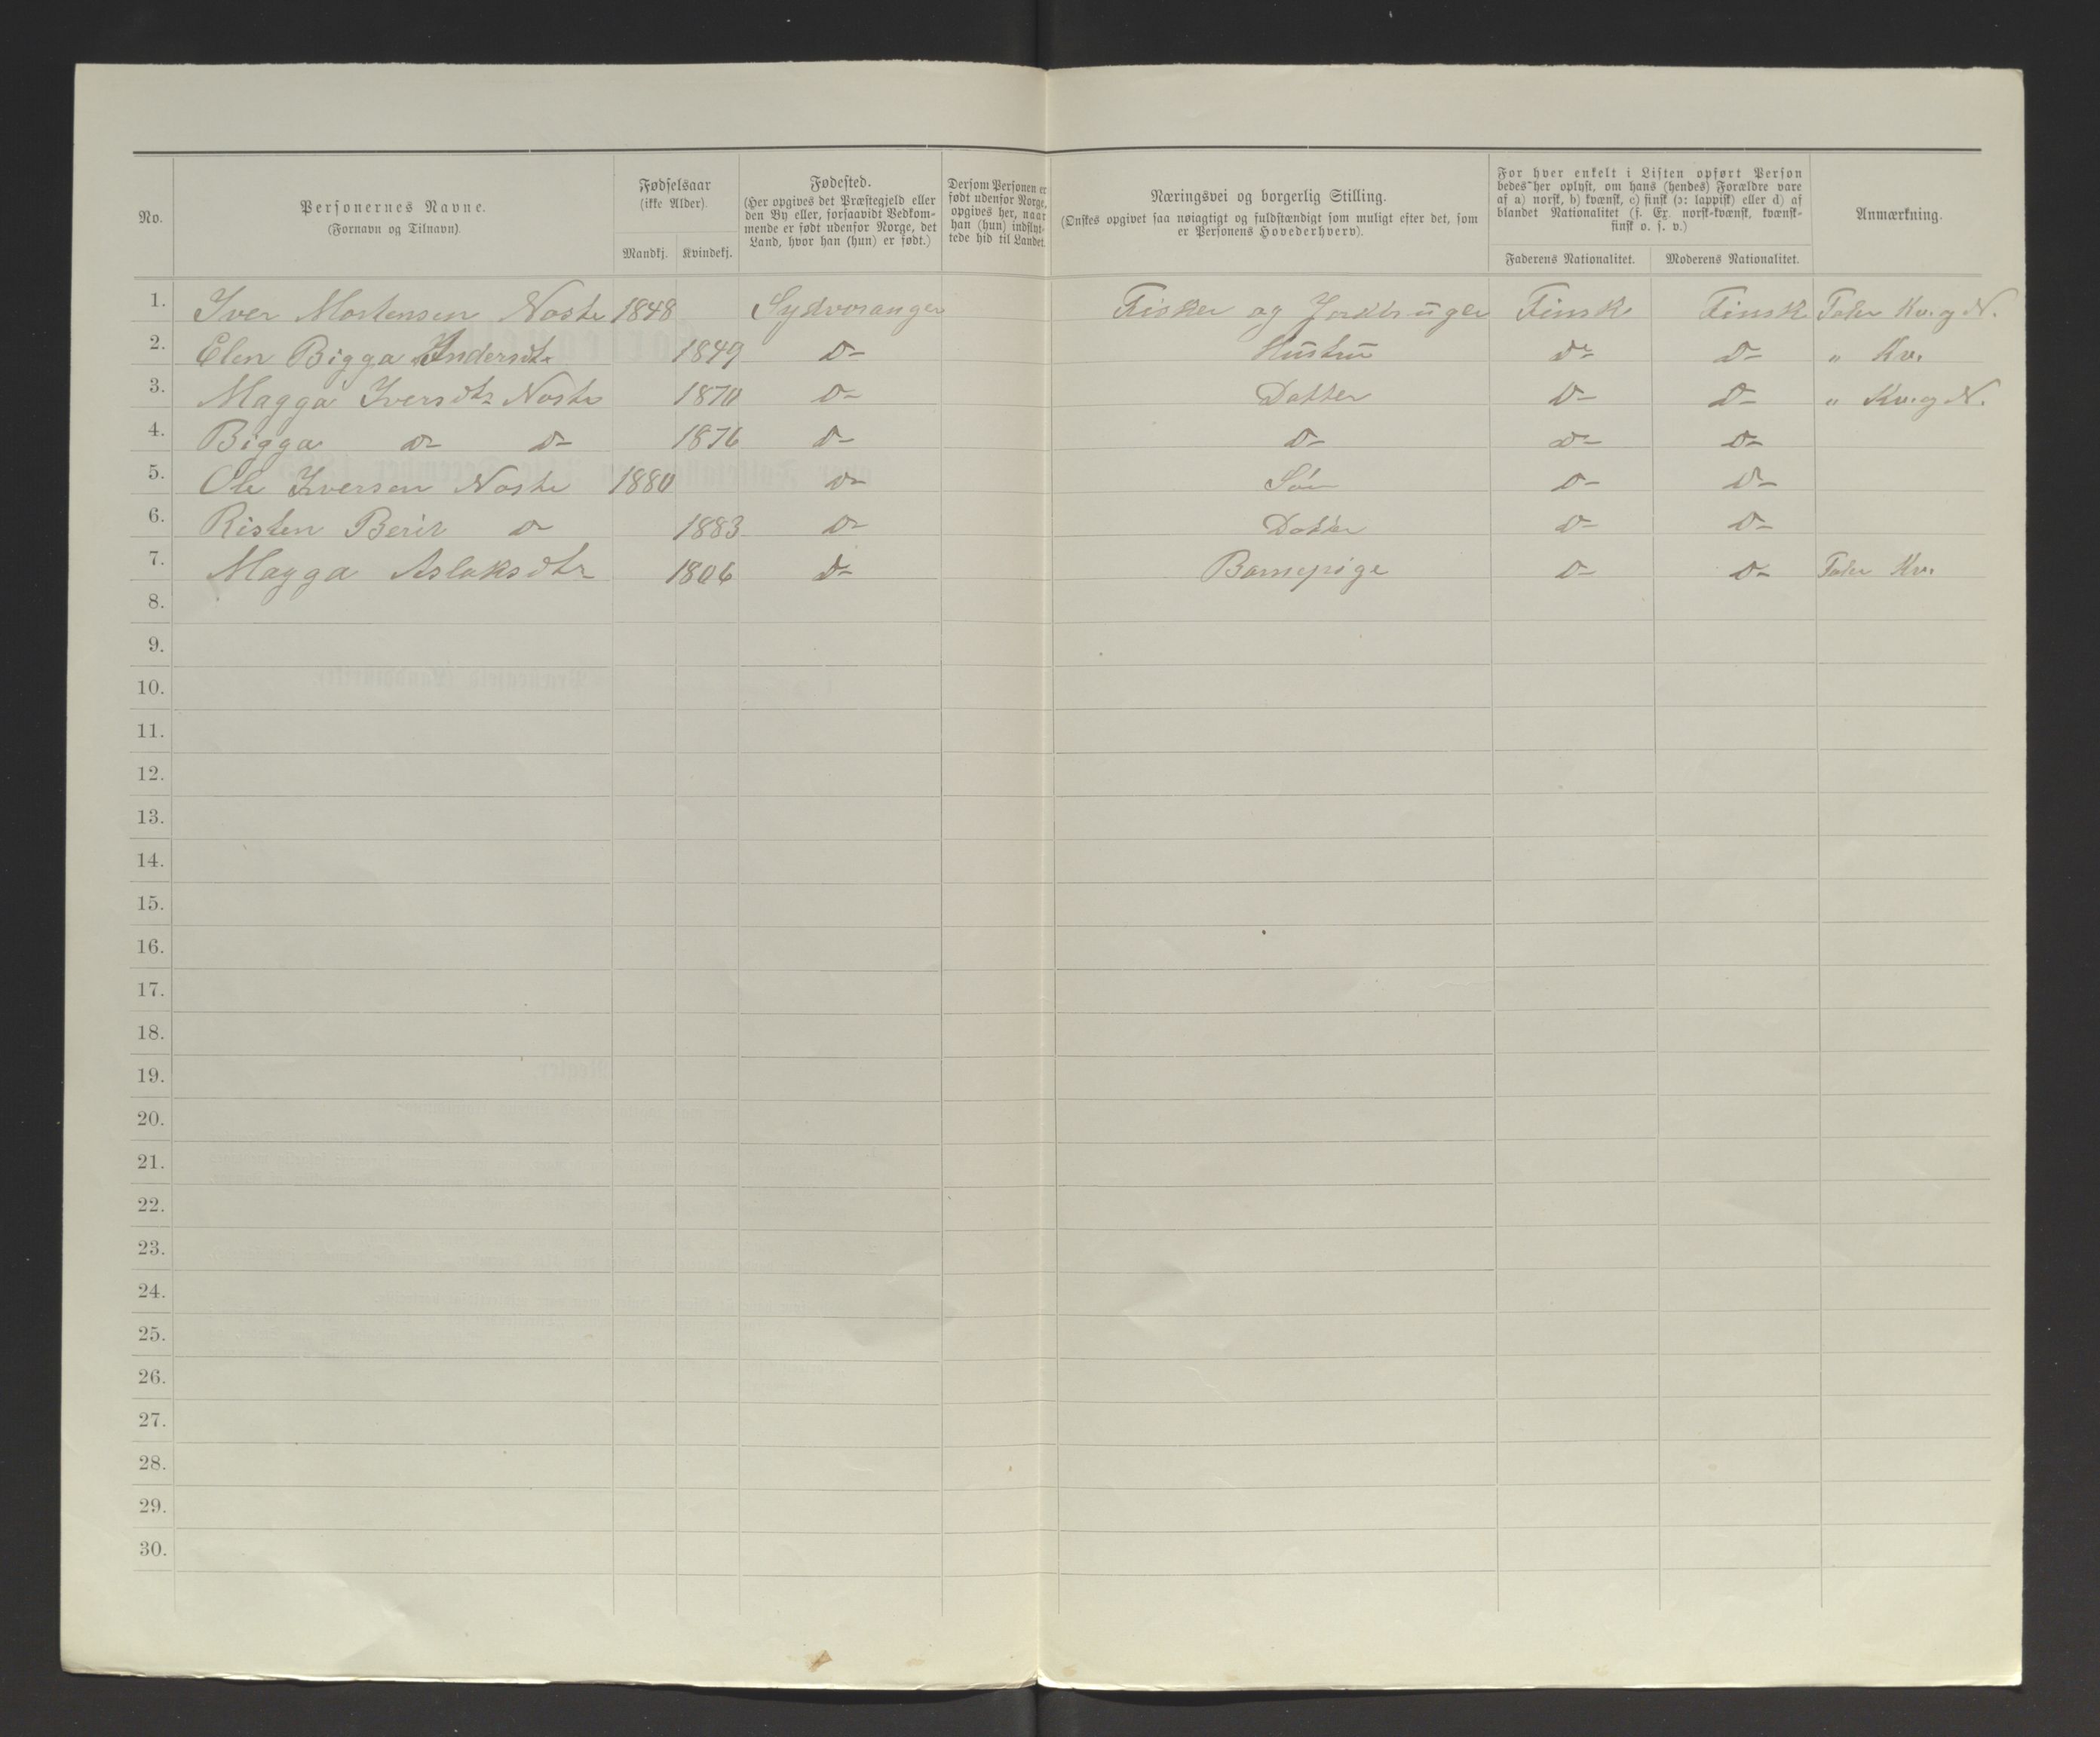 No.
Personernes Navne.
(Fornavn og Tilnavn).
Fødselsaar
(ikke Alder).
Mandkj.
Kvindekj.
Fødested.
(Her opgives det Præstegjeld eller
den By eller, forsaavidt Vedkom-
mende er født udenfor Norge, det
Land, hvor han (hun) er født.)
Dersom Personen er
født udenfor Norge,
opgives her, naar
han (hun) indflyt-
tede hid til Landet.
Næringsvei og borgerlig Stilling.
(Ønskes opgivet saa nøiagtigt og fuldstændigt som muligt efter det, som
er Personens Hovederhverv).
For hver enkelt i Listen opført Person
bedes her oplyst, om hans (hendes) Forældre vare
af a) norsk, b) kvænsk, c) finsk (ɔ: lappisk) eller d) af
blandet Nationalitet (f. Ex. norsk-kvænsk, kvænsk-
finsk o. s. v.)
Faderens Nationalitet.
Moderens Nationalitet.
Anmærkning.
1. Iver Mortensen Noste 1848 Sydvaranger Fisker og Jordbruger Finsk Finsk Taler Kv. og N.
2. Elen Bigga Andersdtr 1849 D- Hustru D- D- „ Kv.
3. Magga Iversdtr Noste 1870 D- Datter D- D- „ Kv. og N.
4. Bigga D- D- 1876 D- D- D- D-
5. Ole Iversen Noste 1880 D- Søn D- D-
6. Risten Berit D- 1883 D- Datter D- D-
7. Magga Aslaksdtr 1806 D- Barnepige D- D- Taler Kv.
8.
9.
10.
11.
12.
13.
14.
15.
16.
17.
18.
19.
20.
21.
22.
23.
24.
25.
26.
27.
28.
29.
30.